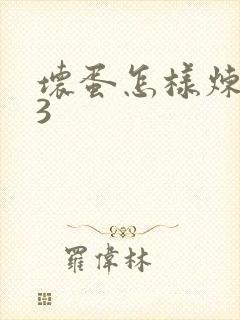 壞蛋怎樣煉
3
羅偉林